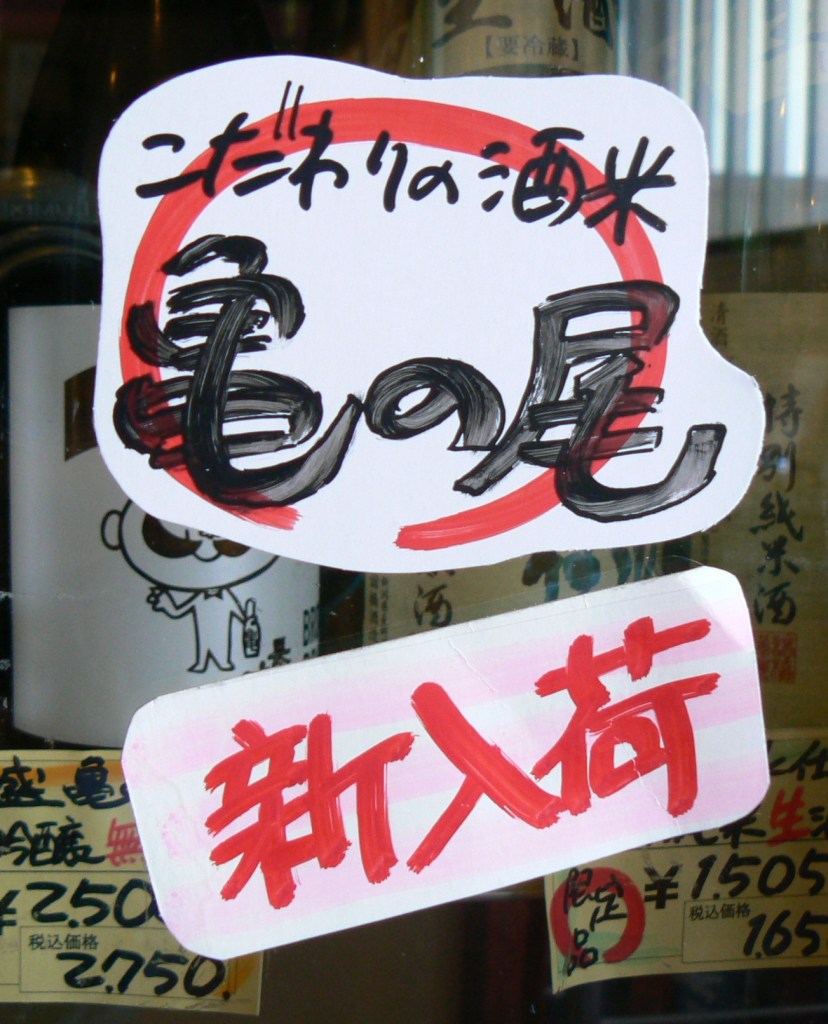 生酒
【要冷蔵】
こだわりの酒米
亀の尾
特別純米酒
酒
新入荷
盛亀
吟醸無
¥2,50
税込価格
2,750.
限定品
生
¥1,505
税込価格
1,65